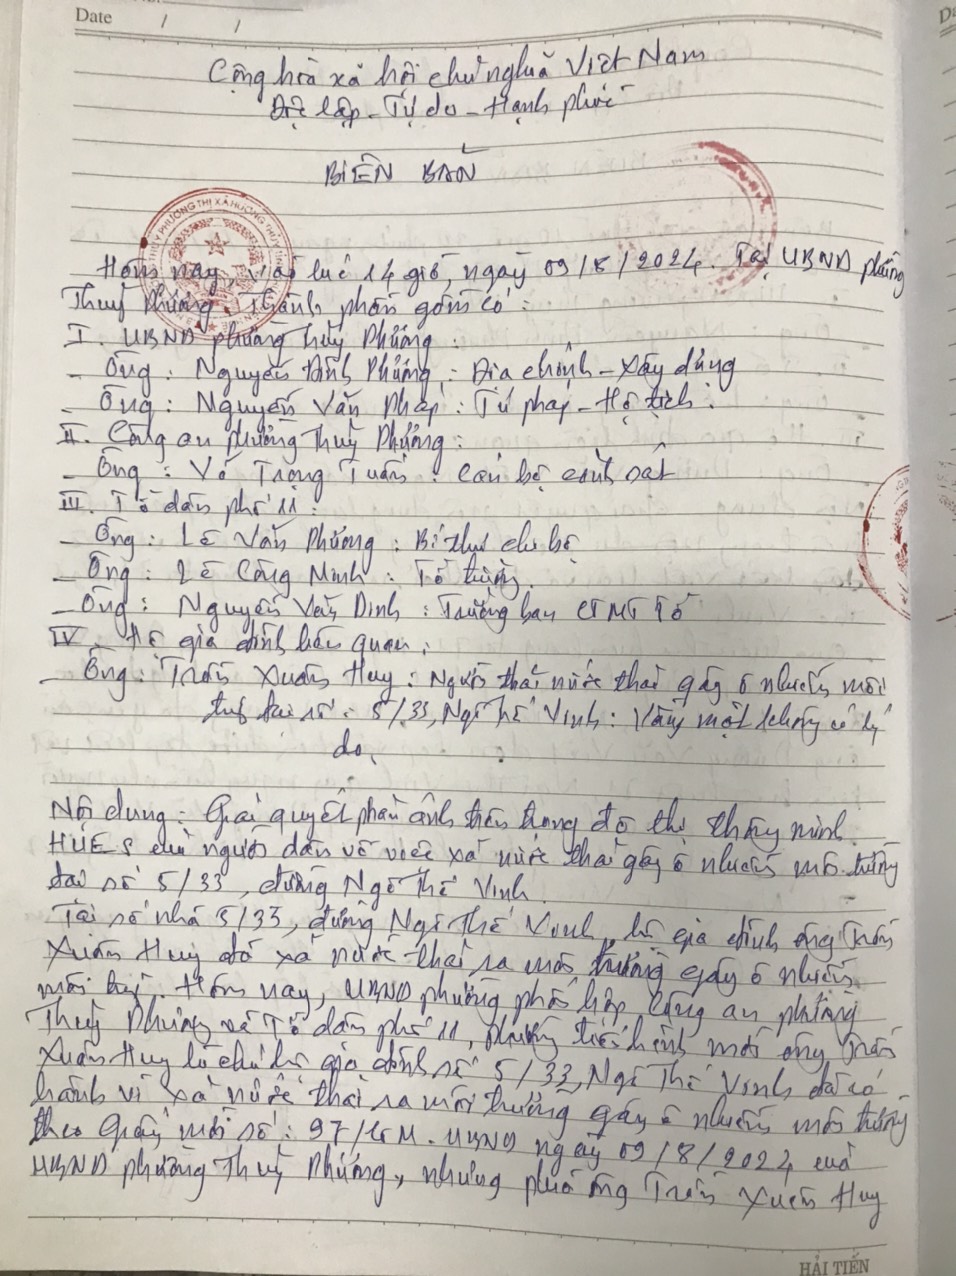 Date / /
Cộng hoà xã hội chủ nghĩa Việt Nam
Độc lập - Tự do - Hạnh phúc
BIÊN BẢN
Hôm nay, vào lúc 14 giờ, ngày 09/8/2024. Tại UBND phường
Thuỷ Phương. Thành phần gồm có:
I. UBND phường Thuỷ Phương:
- Ông: Nguyễn Đình Phương: Địa chính - Xây dựng
- Ông: Nguyễn Văn Pháp: Tư pháp - Hộ tịch.
II. Công an phường Thuỷ Phương:
- Ông: Võ Trọng Tuấn: Cán bộ cảnh sát
III. Tổ dân phố 11:
- Ông: Lê Văn Phương: Bí thư chi bộ
- Ông: Lê Công Minh: Tổ trưởng.
- Ông: Nguyễn Văn Dinh: Trưởng ban CTMT Tổ
IV. Hộ gia đình liên quan:
- Ông: Trần Xuân Huy: Người thải nước thải gây ô nhiễm môi
trường tại số: 5/33, Ngô Thế Vinh: Vắng mặt không có lý
do.
Nội dung: Giải quyết phản ánh trên trang đô thị thông minh
HUES của người dân về việc xả nước thải gây ô nhiễm môi trường
tại số 5/33, đường Ngô Thế Vinh.
Tại số nhà 5/33, đường Ngô Thế Vinh, hộ gia đình ông Trần
Xuân Huy đã xả nước thải ra môi trường gây ô nhiễm
môi trường. Hôm nay, UBND phường phối hợp Công an phường
Thuỷ Phương và Tổ dân phố 11, phường tiến hành mời ông Trần
Xuân Huy là chủ hộ gia đình số 5/33, Ngô Thế Vinh đã có
hành vi xả nước thải ra môi trường gây ô nhiễm môi trường
theo Giấy mời số: 97/GM-UBND ngày 09/8/2024 của
UBND phường Thuỷ Phương, nhưng phía ông Trần Xuân Huy
HẢI TIẾN